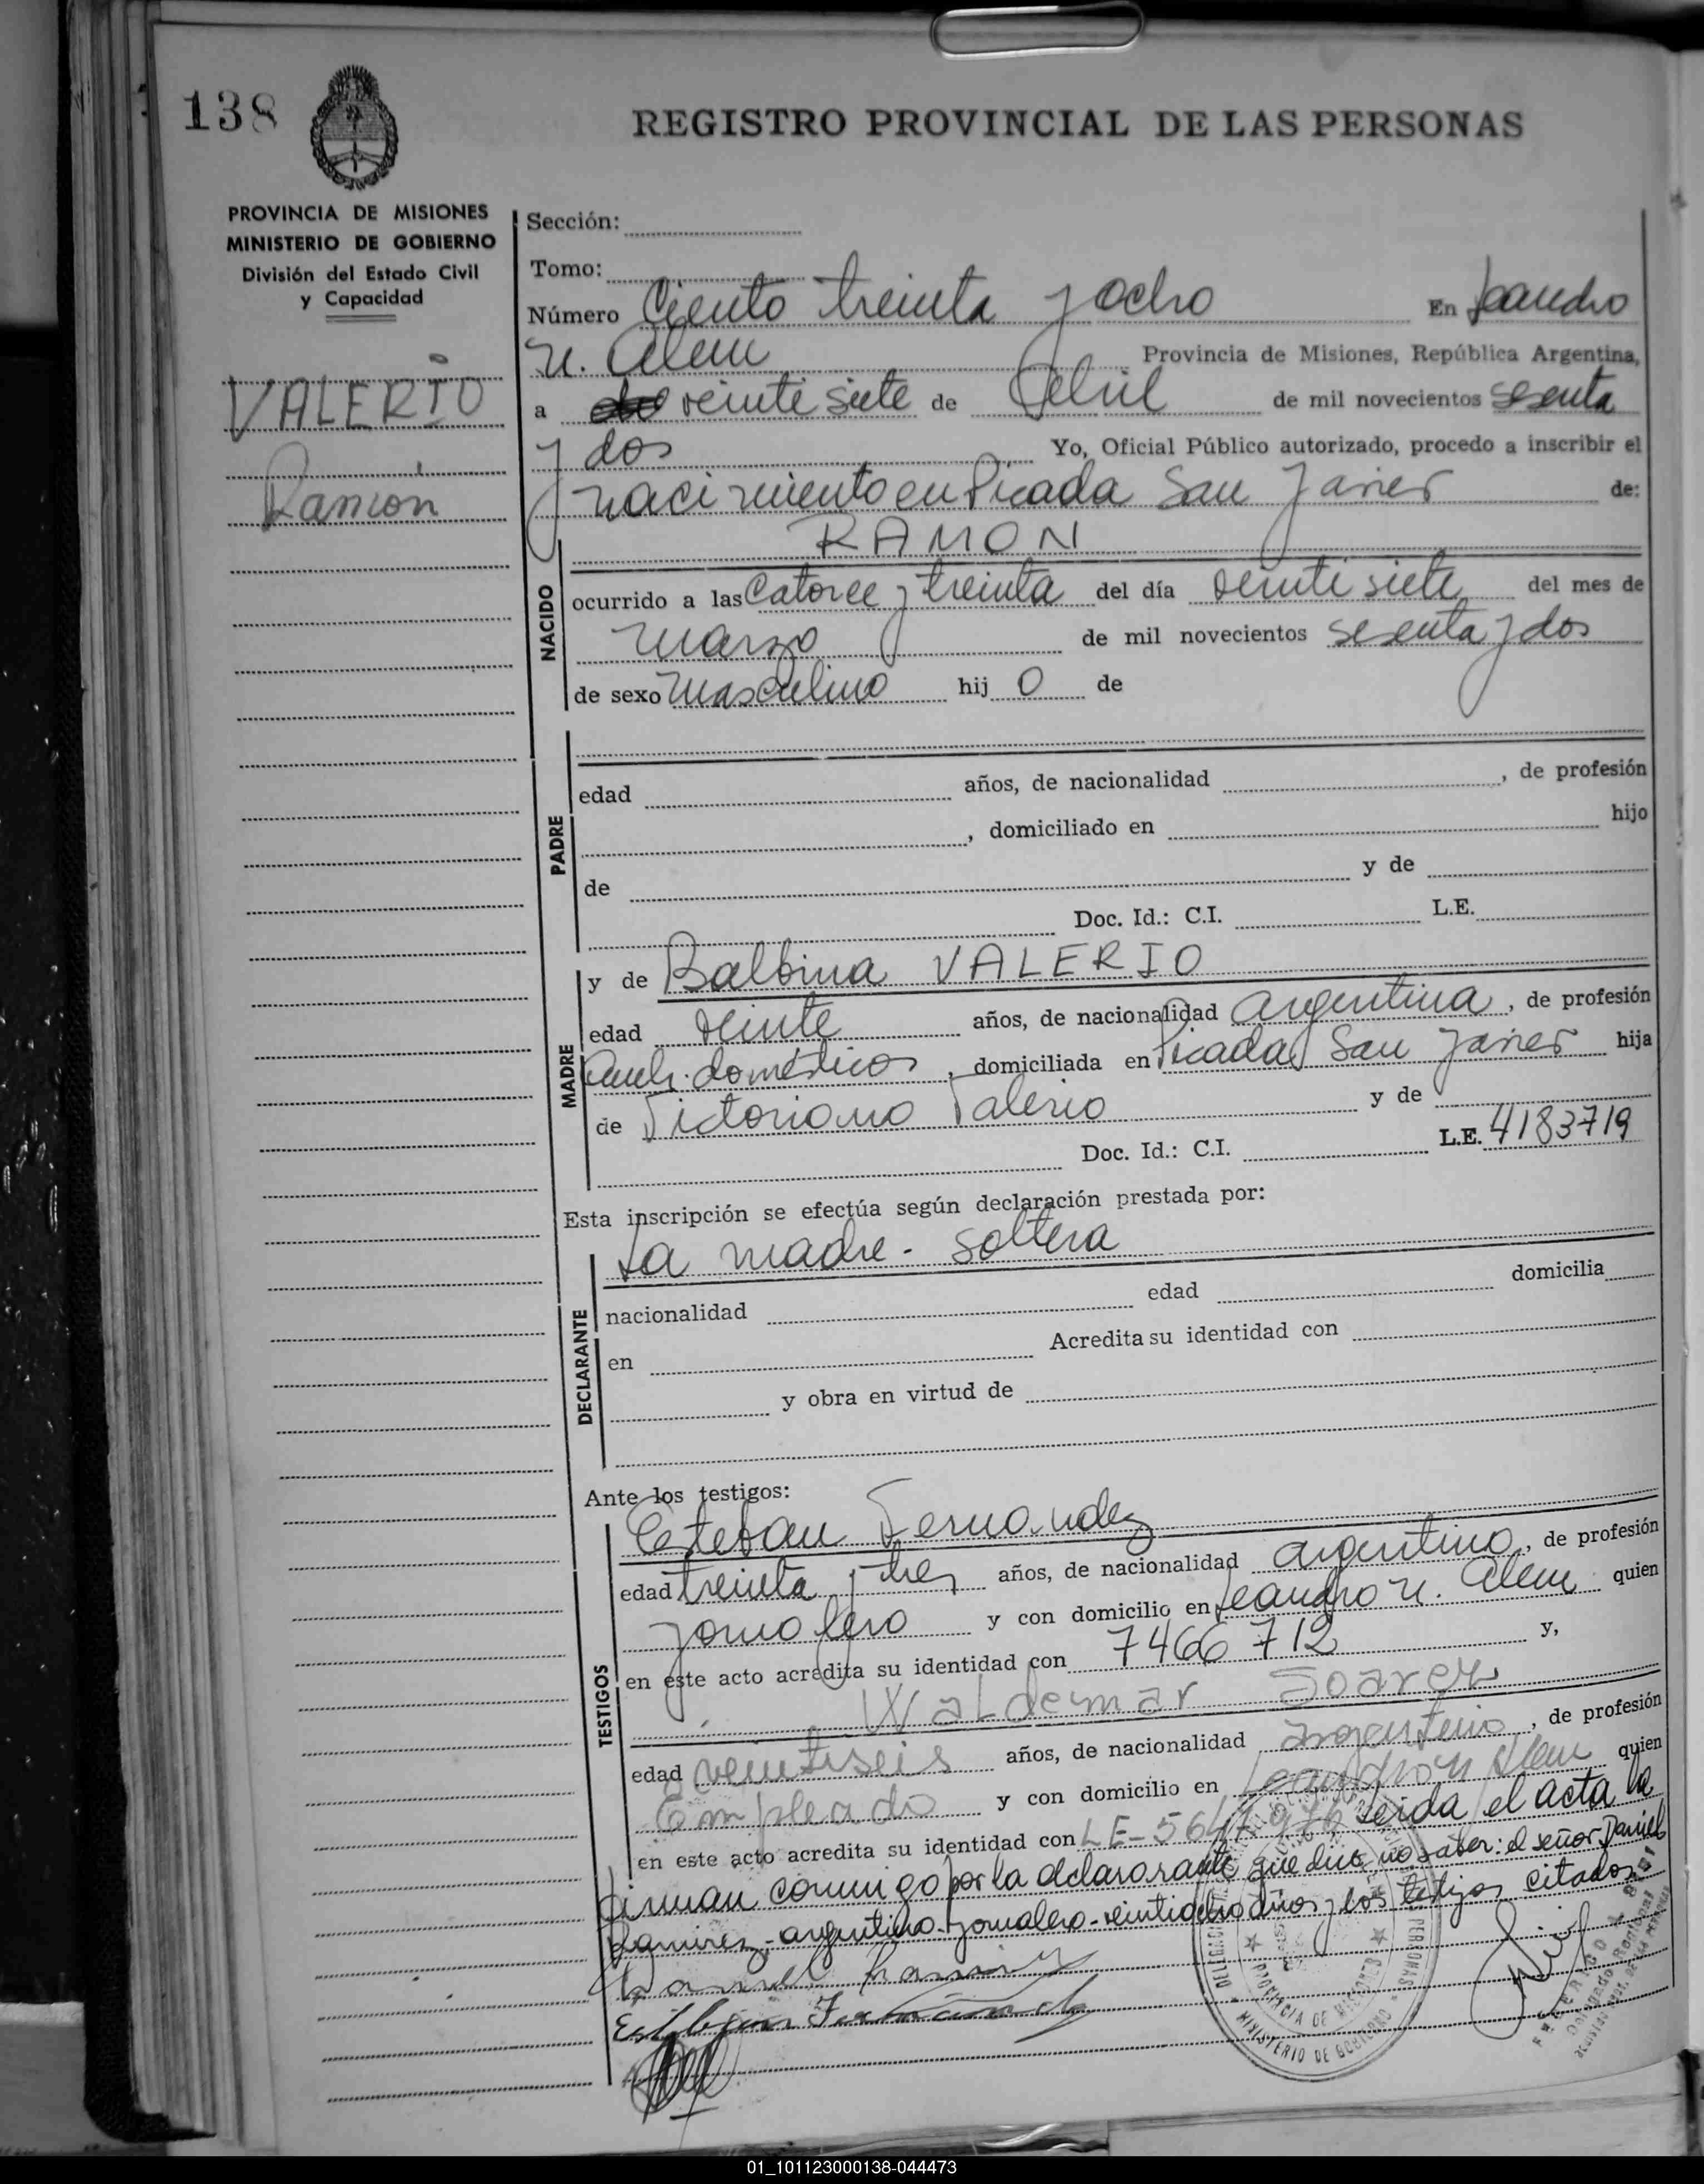 138
REGISTRO PROVINCIAL DE LAS PERSONAS
PROVINCIA DE MISIONES
MINISTERIO DE GOBIERNO
División del Estado Civil
y Capacidad
VALERIO
Ramón
Sección:
Tomo:
Número Ciento treinta y ocho En Leandro
N. Alem Provincia de Misiones, República Argentina,
a veinti siete de Abril de mil novecientos sesenta
y dos Yo, Oficial Público autorizado, procedo a inscribir el
nacimiento en Picada San Javier de:
RAMON
NACIDO
ocurrido a las Catorce y treinta del día veinti siete del mes de
marzo de mil novecientos sesenta y dos
de sexo masculino hij o de
PADRE
edad años, de nacionalidad , de profesión
, domiciliado en hijo
de y de
Doc. Id.: C.I. L.E.
MADRE
y de Balbina VALERIO
edad veinte años, de nacionalidad argentina , de profesión
domésticos , domiciliada en Picada San Javier hija
de Victoriano Valerio y de
Doc. Id.: C.I. L.E. 4183719
Esta inscripción se efectúa según declaración prestada por:
DECLARANTE
La madre - soltera
nacionalidad edad domicilia
en Acredita su identidad con
y obra en virtud de
Ante los testigos:
TESTIGOS
Esteban Fernandez
edad treinta y tres años, de nacionalidad argentino , de profesión
jornalero y con domicilio en Leandro N. Alem quien
en este acto acredita su identidad con 7466712 y,
Waldemar Soarez
edad veintiseis años, de nacionalidad argentino , de profesión
Empleado y con domicilio en Leandro N Alem quien
en este acto acredita su identidad con LE-5647976 Leida el acta la
firman conmigo por la declarante que dice no saber: el señor Daniel
Ramirez - argentino - jornalero - veintiocho años y los testigos citados
Daniel Ramirez
Esteban Fernandez
PROVINCIA DE MISIONES
MINISTERIO DE GOBIERNO
01_101123000138-044473